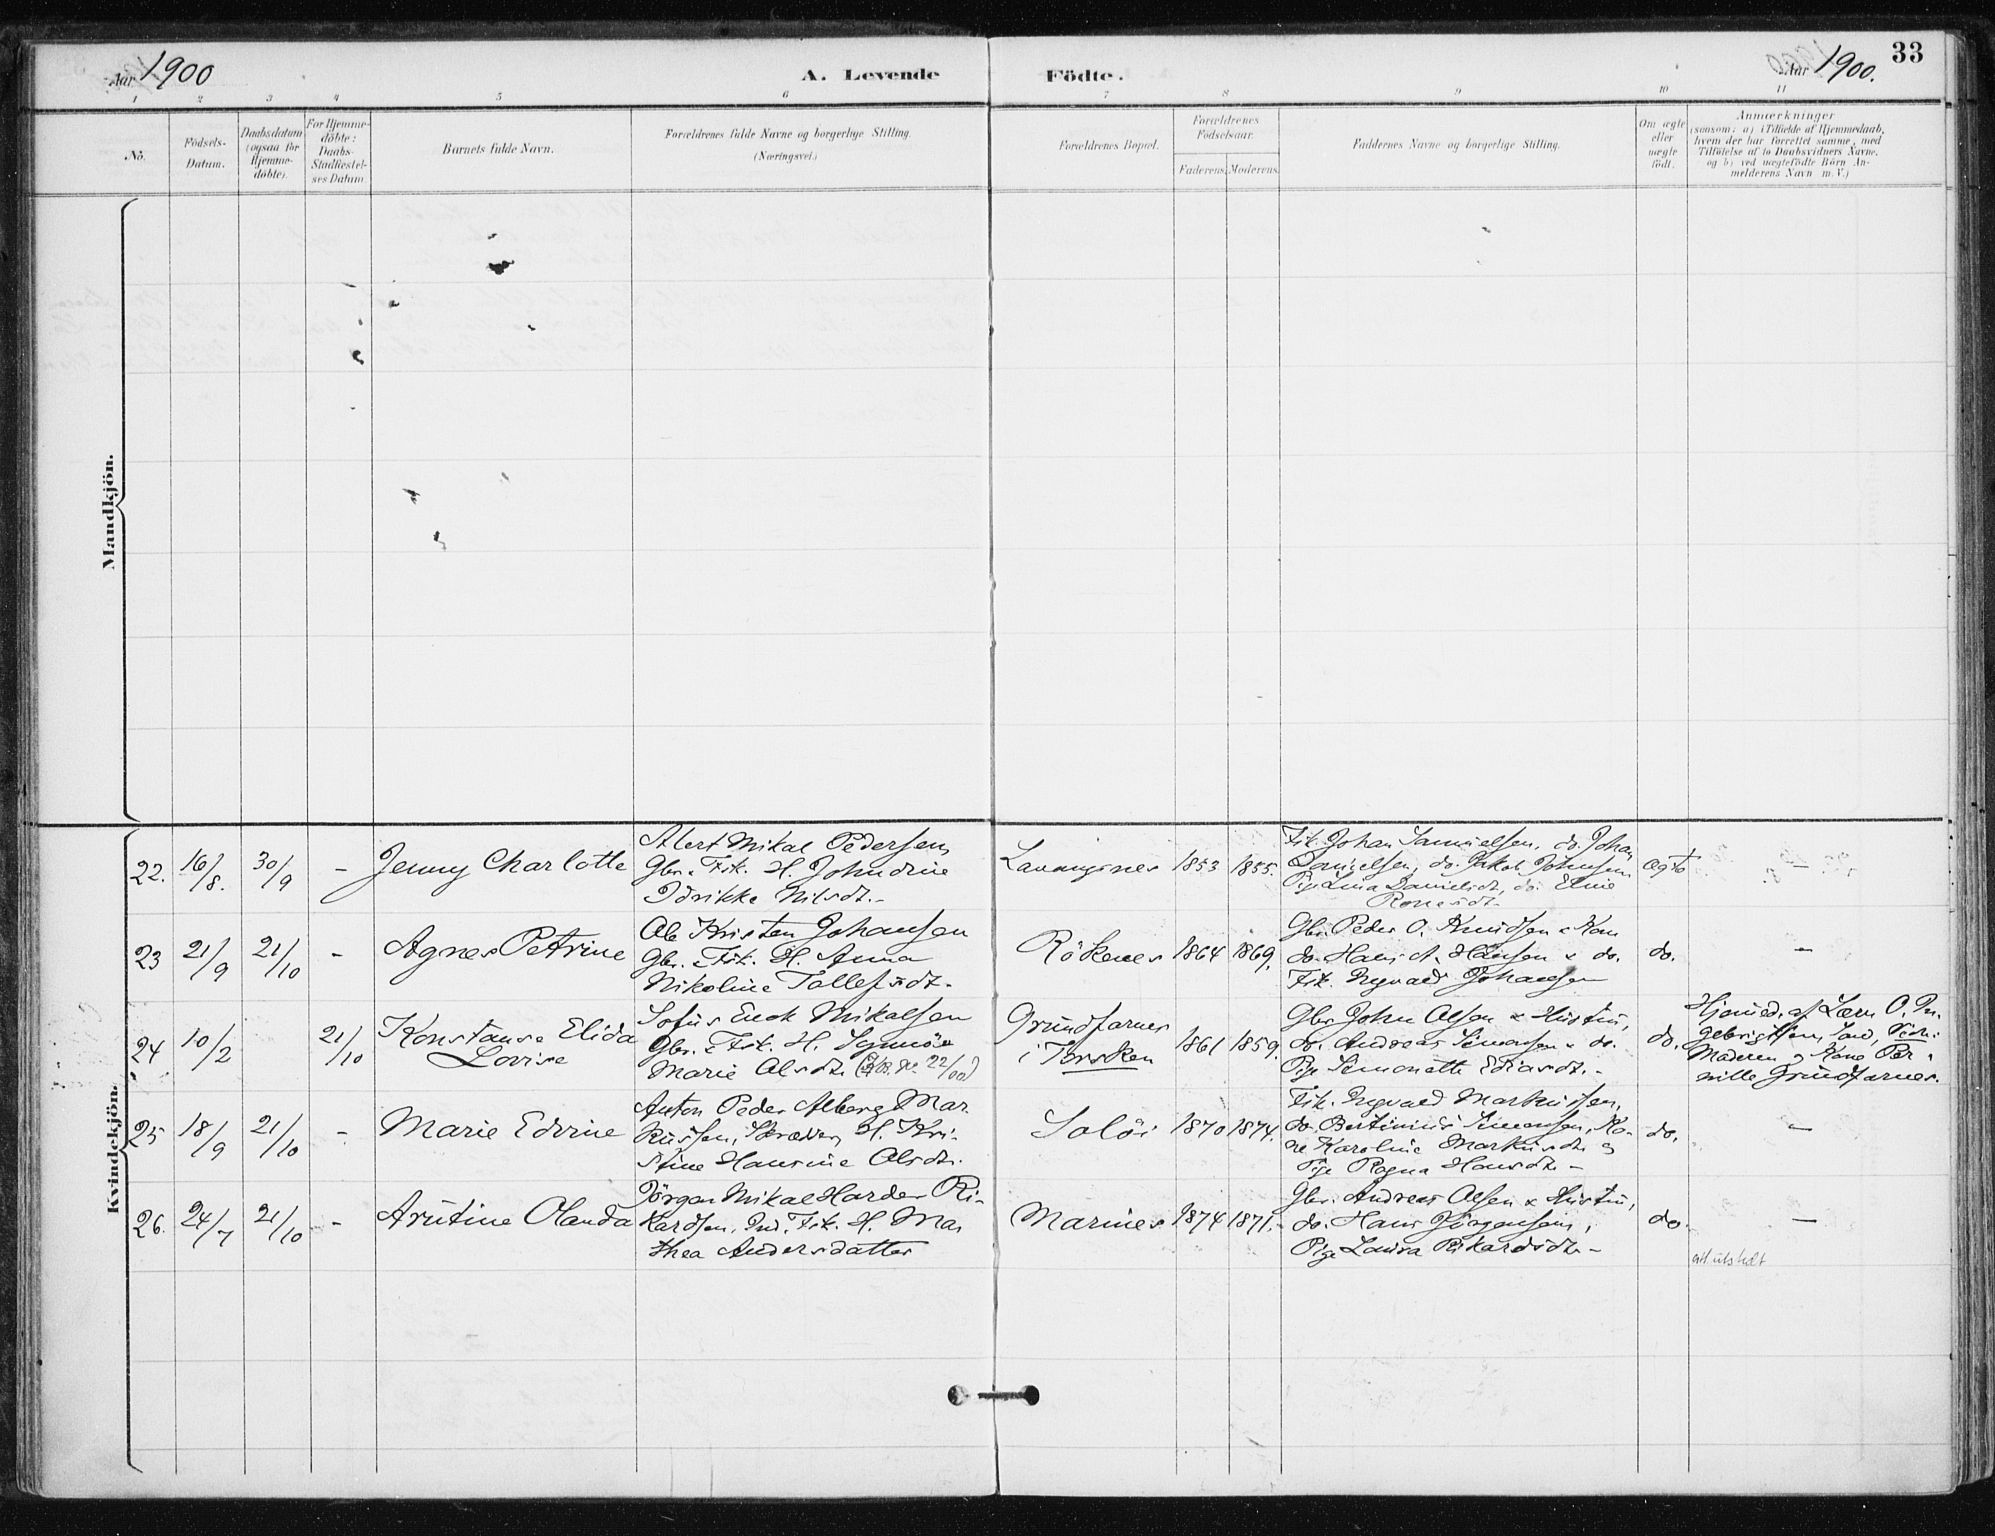 Aar 1900
A. Levende Födte.
Aar 1900.
33
1 2 3 4 5 6 7 8 9 10 11
No.
Födsels-
Datum.
Daabsdatum
(ogsaa for
Hjemme-
döbte).
For Hjemme-
döbte:
Daabs-
Stadfæstel-
ses Datum
Barnets fulde Navn.
Forældrenes fulde Navne og borgerlige Stilling.
(Næringsvei.)
Forældrenes Bopæl.
Forældrenes
Födselsaar.
Faderens. Moderens.
Faddernes Navne og borgerlige Stilling.
Om ægte
eller
uægte
födt.
Anmærkninger
(saasom: a) i Tilfælde af Hjemmedaab,
hvem der har forrettet samme, med
Tilföielse af to Daabsvidners Navne,
og b) ved uægtefödte Börn An-
melderens Navn m. V.)
Mandkjön.
Kvindekjön.
22. 16/8. 30/9 -
Jenny Charlotte
Alert Mikal Pedersen,
Gbr. & Fisk. H. Johndine
Idrikke Nilsdt.-
Lavangsnes
1853 1855.
Fisk. Johan Samuelsen, do. Johan
Danielsen, do. Jakob Johnsen,
Pige Lina Danielsdt, do. Eline
ægte
-
23 21/9 21/10 -
Agnes Petrine
Ole Kristen Johansen
Gbr. & Fisk. H. Anna
Nikoline Tollefsdt.
Rökenes
1864 1869.
Gbr. Peder O. Knudsen & Kone
do. Hans A. Hansen & do.
Fisk. Ingvald Johansen
do.
-
24 10/2 21/10
Konstanse Elida
Lovise
Sofus Enok Mikalsen
Gbr. & Fisk. H.
Marie Olsdt.
Grundfarnes
i Torsken
1861 1859.
Gbr John Olsen & Hustru,
do. Andreas Simonsen & do.
Pige Simonette
do.
Hjemmed. af Lærer O. In-
gebrigtsen,
Moderen og Kone Per-
nille Grundfarnes.
25 18/9 21/10 -
Marie Edvine
Anton Peder Alberg Mar-
kussen, Skrædder, H. Kri-
stine Hansine Olsdt.
Solöi
1870 1874.
Fisk. Ingvald Markussen,
do. Bertinius Simonsen, Ko-
ne Karoline Markusdt. og
Pige Ragna Hansdt. -
do.
-
26. 24/7 21/10 -
Arutine Olanda
Jörgen Mikal Harder Ri-
kardsen, Ind. Fisk. H. Mar
thea Andersdatter
Marines
1874 1871.
Gbr. Andreas Olsen & Hustru,
do. Hans Jörgensen,
Pige Laura Rikardsdt. -
do.
-
att. utstedt